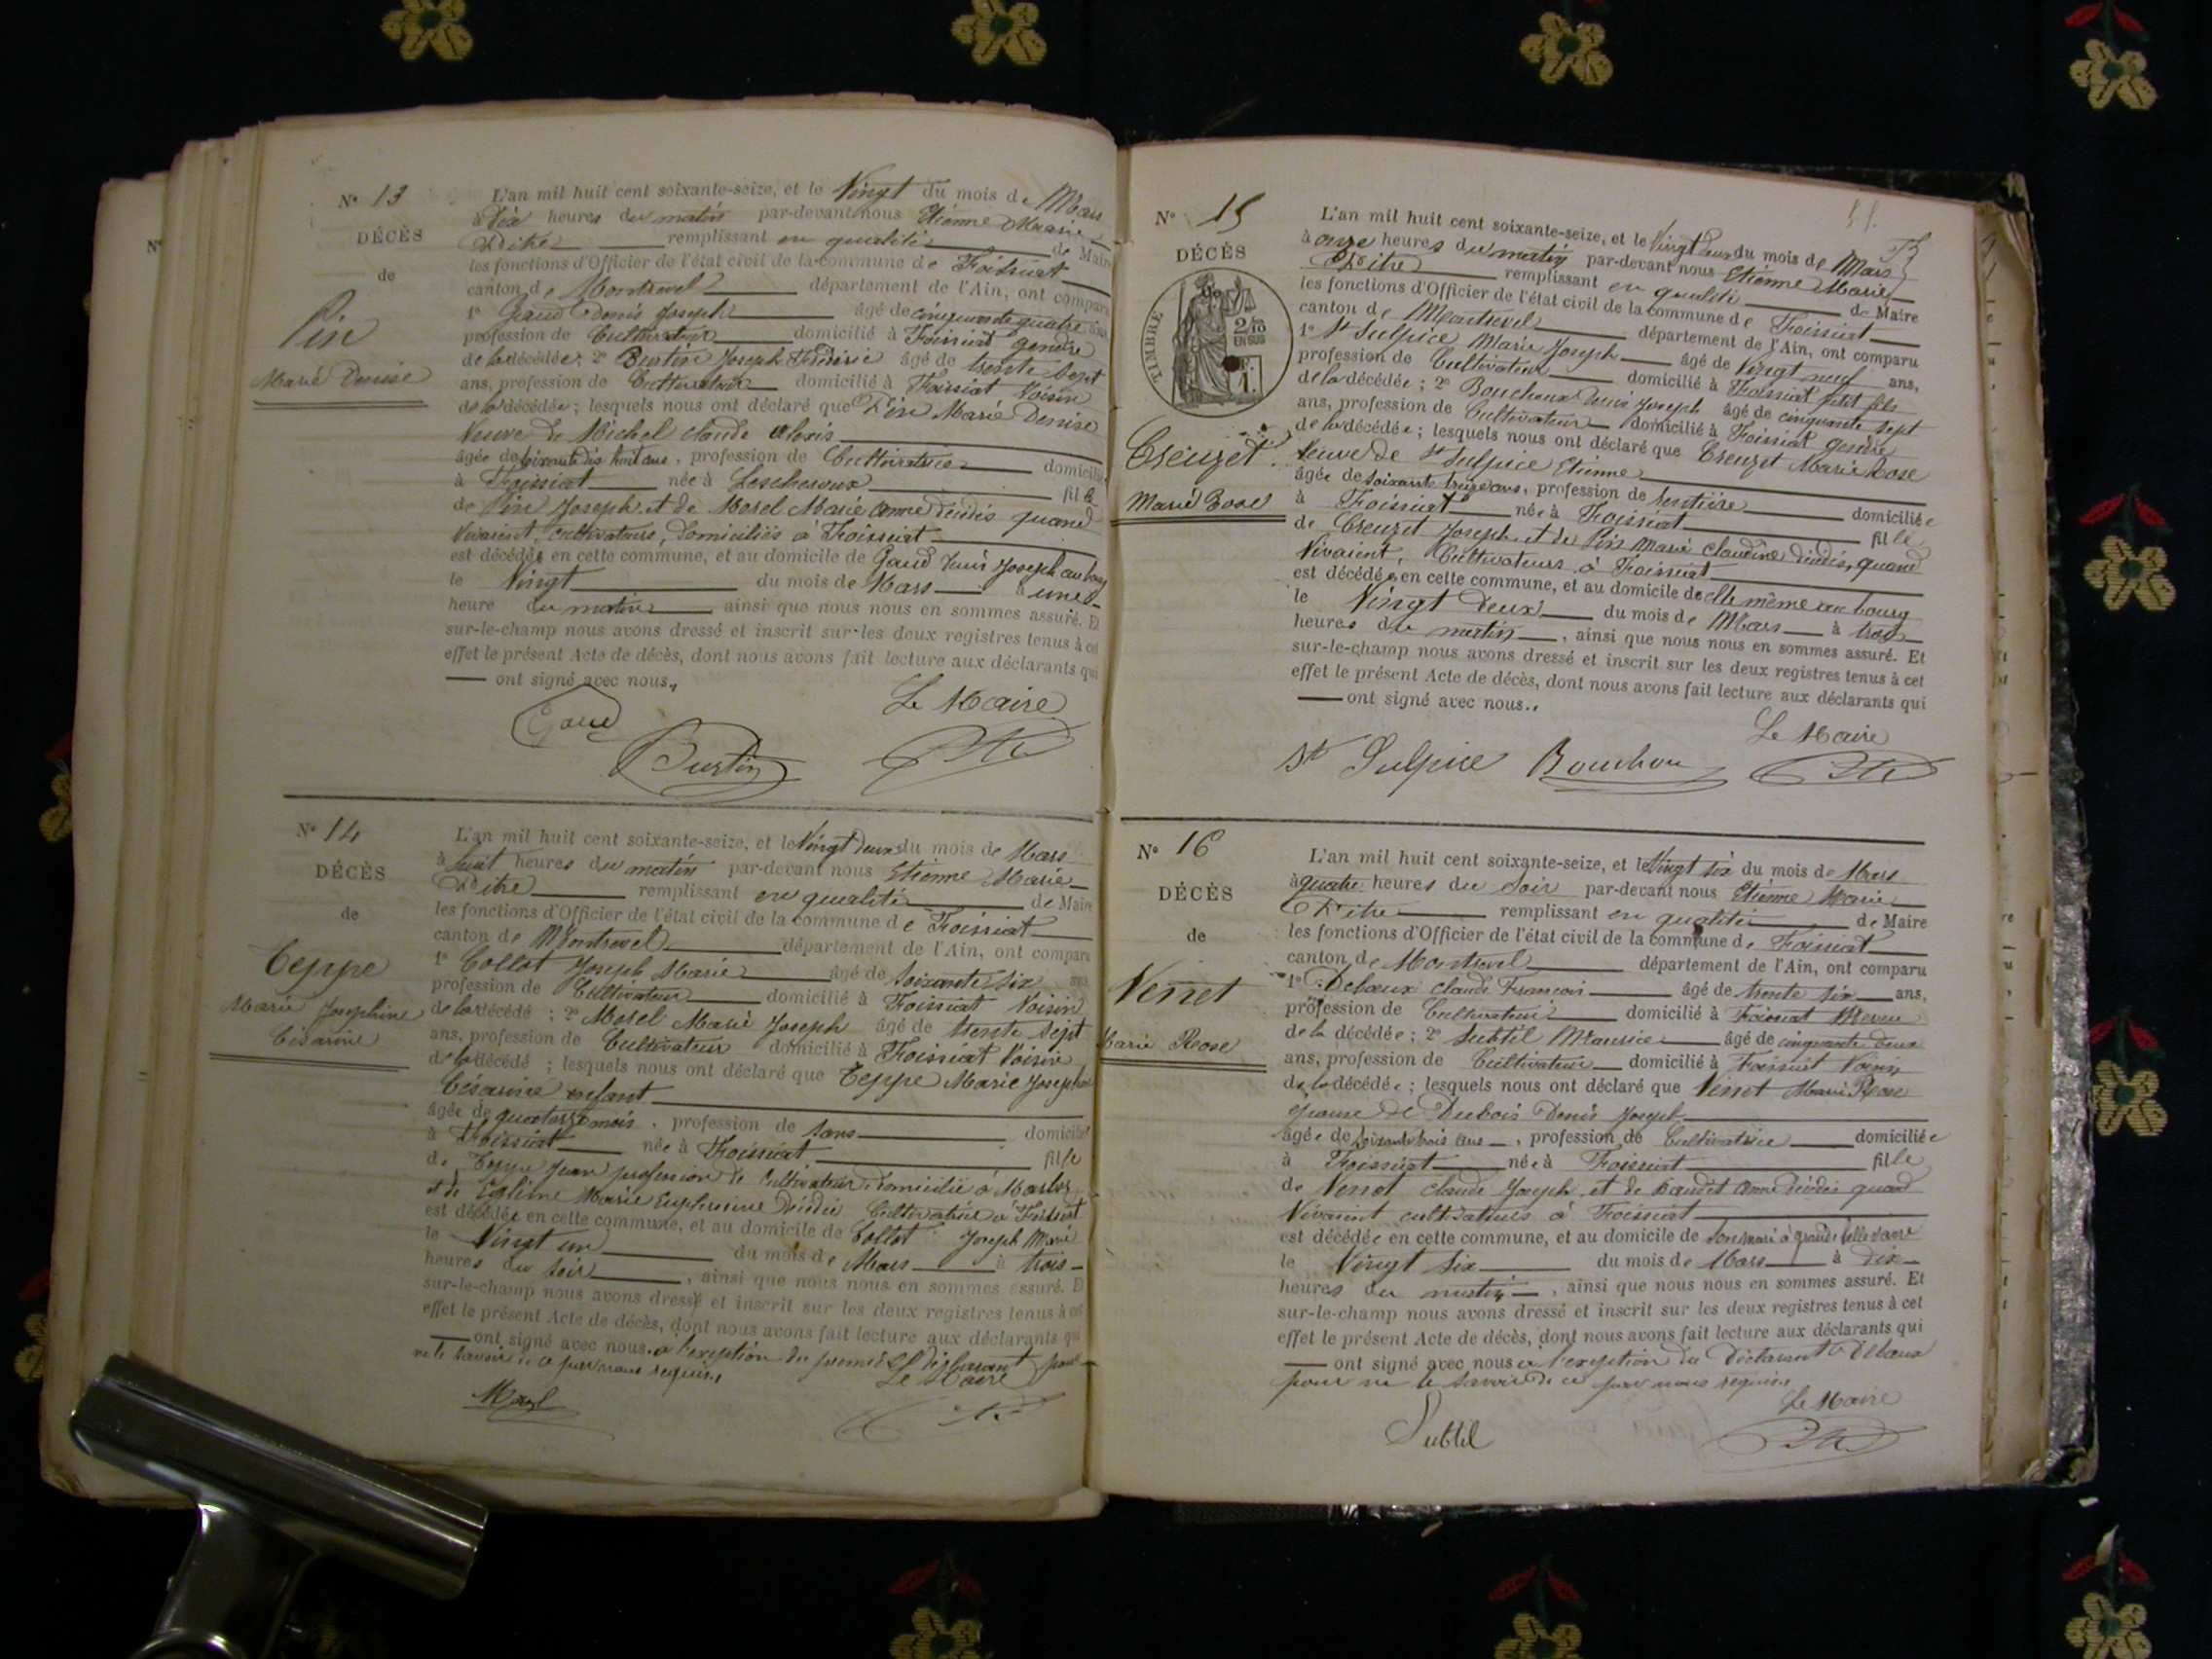 N° 13
DÉCÈS
de
Pin
Marie Denise
L'an mil huit cent soixante-seize, et le Vingt du mois de Mars
à dix heures du matin par-devant nous Etienne Marie
remplissant en qualité de Maire
les fonctions d'Officier de l'état civil de la commune de Foissiat
canton de Montrevel département de l'Ain, ont comparu
1° Gaud Denis Joseph âgé de cinquante quatre ans
profession de Cultivateur domicilié à Foissiat gendre
de la décédée; 2° Joseph âgé de trente sept
ans, profession de Cultivateur domicilié à Foissiat Voisin
de la décédée; lesquels nous ont déclaré que Pin Marie Denise
Veuve de Michel Claude Alexis
âgée de soixante dix huit ans, profession de Cultivatrice domiciliée
à Foissiat née à Lescheroux fille
de Pin Joseph et de Morel Marie Anne décédés quand
Vivaient, Cultivateurs, domiciliés à Foissiat
est décédée en cette commune, et au domicile de Gaud Denis Joseph au bourg
le Vingt du mois de Mars à une
heure du matin ainsi que nous nous en sommes assuré. Et
sur-le-champ nous avons dressé et inscrit sur les deux registres tenus à cet
effet le présent Acte de décès, dont nous avons fait lecture aux déclarants qui
ont signé avec nous.
Le Maire
Gaud
N° 14
DÉCÈS
de
Teppe
Marie Joséphine
Césarine
L'an mil huit cent soixante-seize, et le Vingt deux du mois de Mars
à huit heures du matin par-devant nous Etienne Marie
remplissant en qualité de Maire
les fonctions d'Officier de l'état civil de la commune de Foissiat
canton de Montrevel département de l'Ain, ont comparu
1° Collot Joseph Marie âgé de soixante six ans
profession de Cultivateur domicilié à Foissiat Voisin
de la décédé; 2° Morel Marie Joseph âgé de trente sept
ans, profession de Cultivateur domicilié à Foissiat Voisin
de la décédé; lesquels nous ont déclaré que Teppe Marie Joséphine
Césarine enfant
âgée de quatorze mois, profession de sans domiciliée
à Foissiat née à Foissiat fille
de Teppe Jean profession de Cultivateur domicilié à
et de Marie Euphrosine Décédée Cultivatrice à Foissiat
est décédée en cette commune, et au domicile de Collot Joseph Marie
le Vingt un du mois de Mars à trois
heures du soir, ainsi que nous nous en sommes assuré. Et
sur-le-champ nous avons dressé et inscrit sur les deux registres tenus à cet
effet le présent Acte de décès, dont nous avons fait lecture aux déclarants qui
ont signé avec nous à l'exception du premier déclarant pour
ne le savoir de ce par nous requis.
Le Maire
Morel
N° 15
DÉCÈS
TIMBRE
2/10
EN SUS
Creuzet
Marie Rose
L'an mil huit cent soixante-seize, et le Vingt deux du mois de Mars
à onze heures du matin par-devant nous Etienne Marie
remplissant en qualité de Maire
les fonctions d'Officier de l'état civil de la commune de Foissiat
canton de Montrevel département de l'Ain, ont comparu
1° St Sulpice Marie Joseph âgé de Vingt neuf ans,
profession de Cultivateur domicilié à Foissiat petit fils
de la décédée; 2° Bouchoux Denis Joseph âgé de cinquante sept
ans, profession de Cultivateur domicilié à Foissiat gendre
de la décédée; lesquels nous ont déclaré que Creuzet Marie Rose
Veuve de St Sulpice Etienne
âgée de soixante treize ans, profession de Rentière domiciliée
à Foissiat née à Foissiat fille
de Creuzet Joseph et de Pin Marie Claudine décédés, quand
Vivaient, Cultivateurs à Foissiat
est décédée en cette commune, et au domicile de elle même au bourg
le Vingt deux du mois de Mars à trois
heures du matin, ainsi que nous nous en sommes assuré. Et
sur-le-champ nous avons dressé et inscrit sur les deux registres tenus à cet
effet le présent Acte de décès, dont nous avons fait lecture aux déclarants qui
ont signé avec nous.
Le Maire
St Sulpice Bouchou
N° 16
DÉCÈS
de
Venet
Marie Rose
L'an mil huit cent soixante-seize, et le Vingt six du mois de Mars
à quatre heures du soir par-devant nous Etienne Marie
remplissant en qualité de Maire
les fonctions d'Officier de l'état civil de la commune de Foissiat
canton de Montrevel département de l'Ain, ont comparu
1° Debaux Claude François âgé de trente six ans,
profession de Cultivateur domicilié à Foissiat Neveu
de la décédée; 2° Subtil Maurice âgé de cinquante deux
ans, profession de Cultivateur domicilié à Foissiat Voisin
de la décédée; lesquels nous ont déclaré que Venet Marie Rose
épouse de Dubois Denis Joseph
âgée de soixante trois ans, profession de Cultivatrice domiciliée
à Foissiat née à Foissiat fille
de Venet Claude Joseph et de Anne décédés quand
Vivaient cultivateurs à Foissiat
est décédée en cette commune, et au domicile de son mari à
le Vingt six du mois de Mars à dix
heures du matin, ainsi que nous nous en sommes assuré. Et
sur-le-champ nous avons dressé et inscrit sur les deux registres tenus à cet
effet le présent Acte de décès, dont nous avons fait lecture aux déclarants qui
ont signé avec nous à l'exception du Déclarant Debaux
pour ne le savoir de ce par nous requis.
Le Maire
Subtil